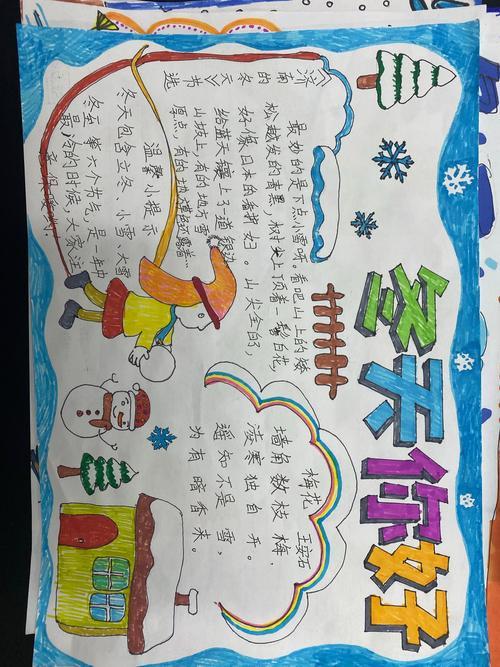 冬天你好
《济南的冬天》节选
最妙的是下点小雪呀。看吧山上的矮
松越发的青黑,树尖上顶着一髻白花,
好像日本的看护妇。山尖全
给蓝天镶上了一道银边
山坡上,有的地方雪
厚点,有的草地草色还露着…
温馨小提示
冬天包含立冬、小雪、大雪
冬至等六个节气,是一年中
最冷的时候,大家注
意保暖
梅花
王安石
墙角数枝梅,
凌寒独自开。
遥知不是雪,
为有暗香来。